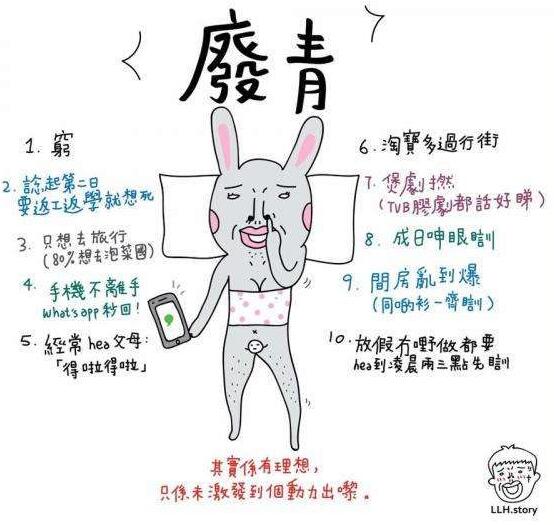 廢青
1. 窮
2. 諗起第二日
要返工返學就想死
3. 只想去旅行
(80%想去泡菜國)
4. 手機不離手
what's app 秒回!
5. 經常 hea 父母:
「得啦得啦」
6. 淘寶多過行街
7. 煲劇撚
(TVB膠劇都話好睇)
8. 成日呻眼瞓
9. 間房亂到爆
(同啲衫一齊瞓)
10. 放假冇嘢做都要
hea到凌晨兩三點先瞓
其實係有理想,
只係未激發到個動力出嚟。
LLH.story